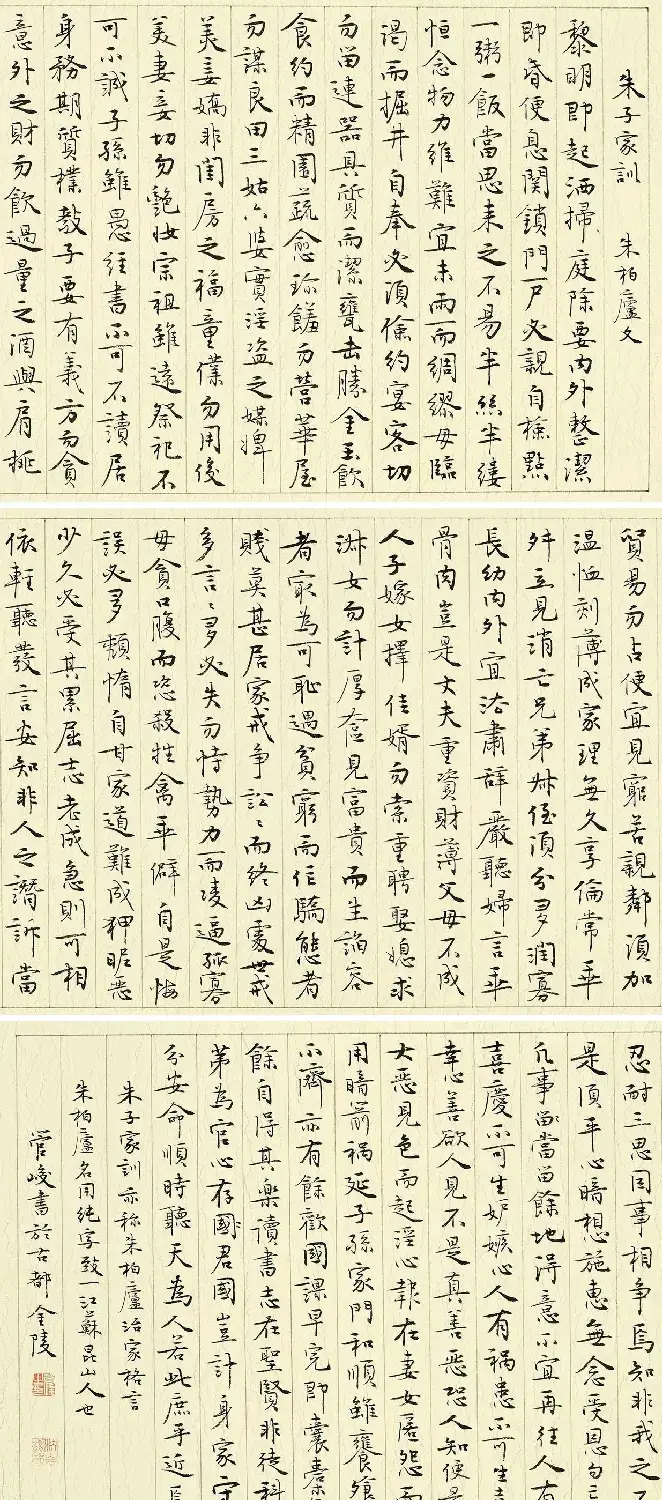 朱子家訓 朱柏廬文
黎明即起洒掃庭除要內外整潔
即昏便息関鎖門戸必親自檢點
一粥一飯當思来之不易半絲半縷
恒念物力維難宜未雨而綢繆毋臨
渴而掘井自奉必須儉約宴客切
勿留連器具質而潔甕缶勝金玉飲
食約而精園蔬愈珍饈勿營華屋
勿謀良田三姑六婆實淫盗之媒婢
美妾嬌非閨房之福童僕勿用俊
美妻妾切勿艷妝宗祖雖遠祭祀不
可不誠子孫雖愚經書不可不讀居
身務期質樸教子要有義方勿貪
意外之財勿飲過量之酒與肩挑
貿易勿占便宜見窮苦親鄰須加
温恤刻薄成家理無久享倫常乖
舛立見消亡兄弟叔侄須分多潤寡
長幼內外宜法肅辞嚴聽婦言乖
骨肉豈是丈夫重資財薄父母不成
人子嫁女擇佳婿勿索重聘娶媳求
淑女勿計厚奩見富貴而生諂容
者最為可恥遇貧窮而作驕態者
賤莫甚居家戒争訟〻而終凶處世戒
多言〻多必失勿恃勢力而凌逼孤寡
毋貪口腹而恣殺牲禽乖僻自是悔
誤必多頹惰自甘家道難成狎昵恶
少久必受其累屈志老成急則可相
依輕聽發言安知非人之譖訴當
忍耐三思因事相争焉知非我之不
是須平心暗想施惠無念受恩勿
凡事留當留餘地得意不宜再往人有
喜慶不可生妒嫉心人有禍患不可生
幸心善欲人見不是真善恶恐人知便是
大恶見色而起淫心報在妻女匿怨而
用暗箭禍延子孫家門和順雖饔飧
不濟亦有餘歡國課早完即囊橐
餘自得其樂讀書志在聖賢非徒科
第為官心存國君國豈計身家守
分安命順時聽天為人若此庶乎近焉
朱子家訓亦称朱柏廬治家格言
朱柏廬名用純字致一江蘇昆山人也
管峻書於古都金陵